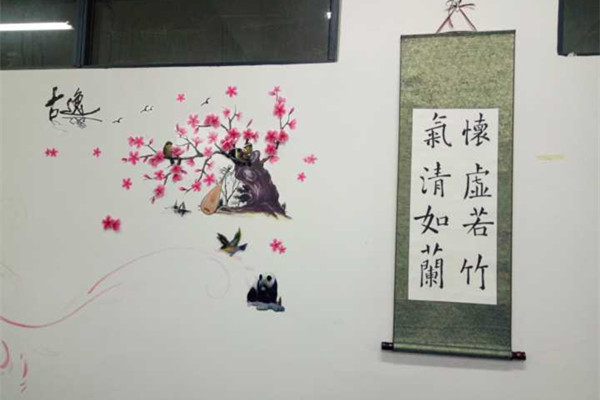 懷虛若竹
氣清如蘭
古逸